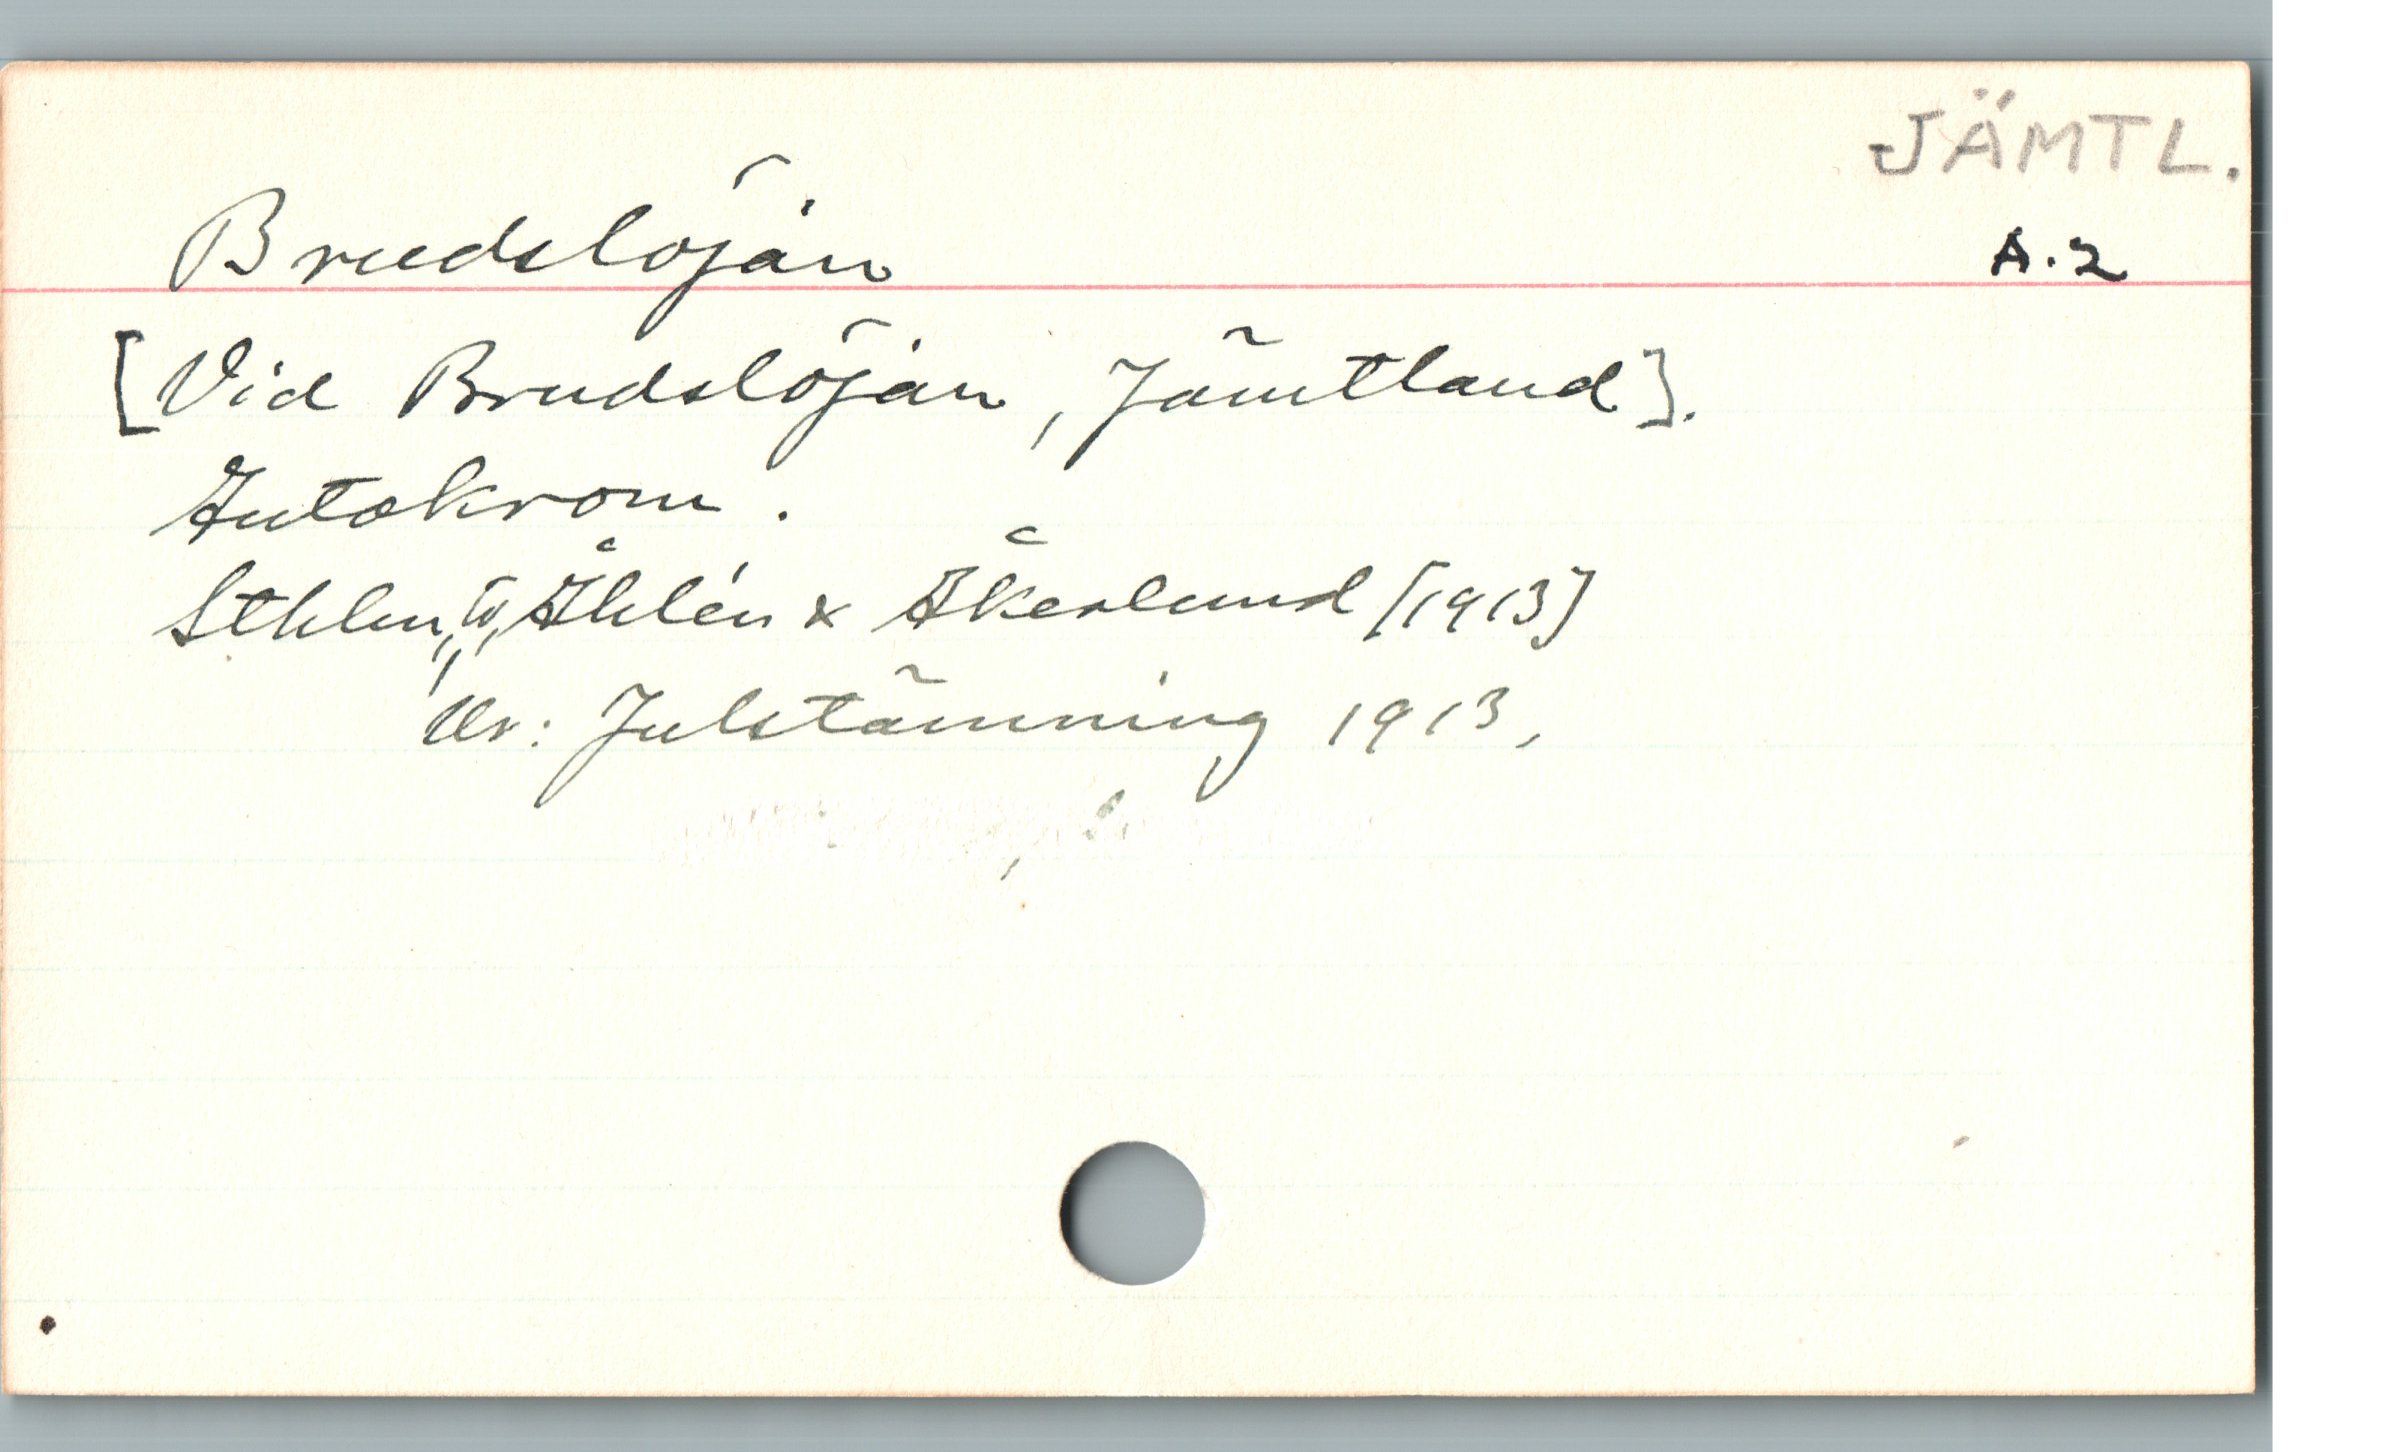 JÄMTL.
Brudslöjan A.2
[Vid Brudslöjan, Jämtland].
Autokrom.
Sthlm, Åhlén & Åkerlund [1913]
Ur: Julstämning 1913,